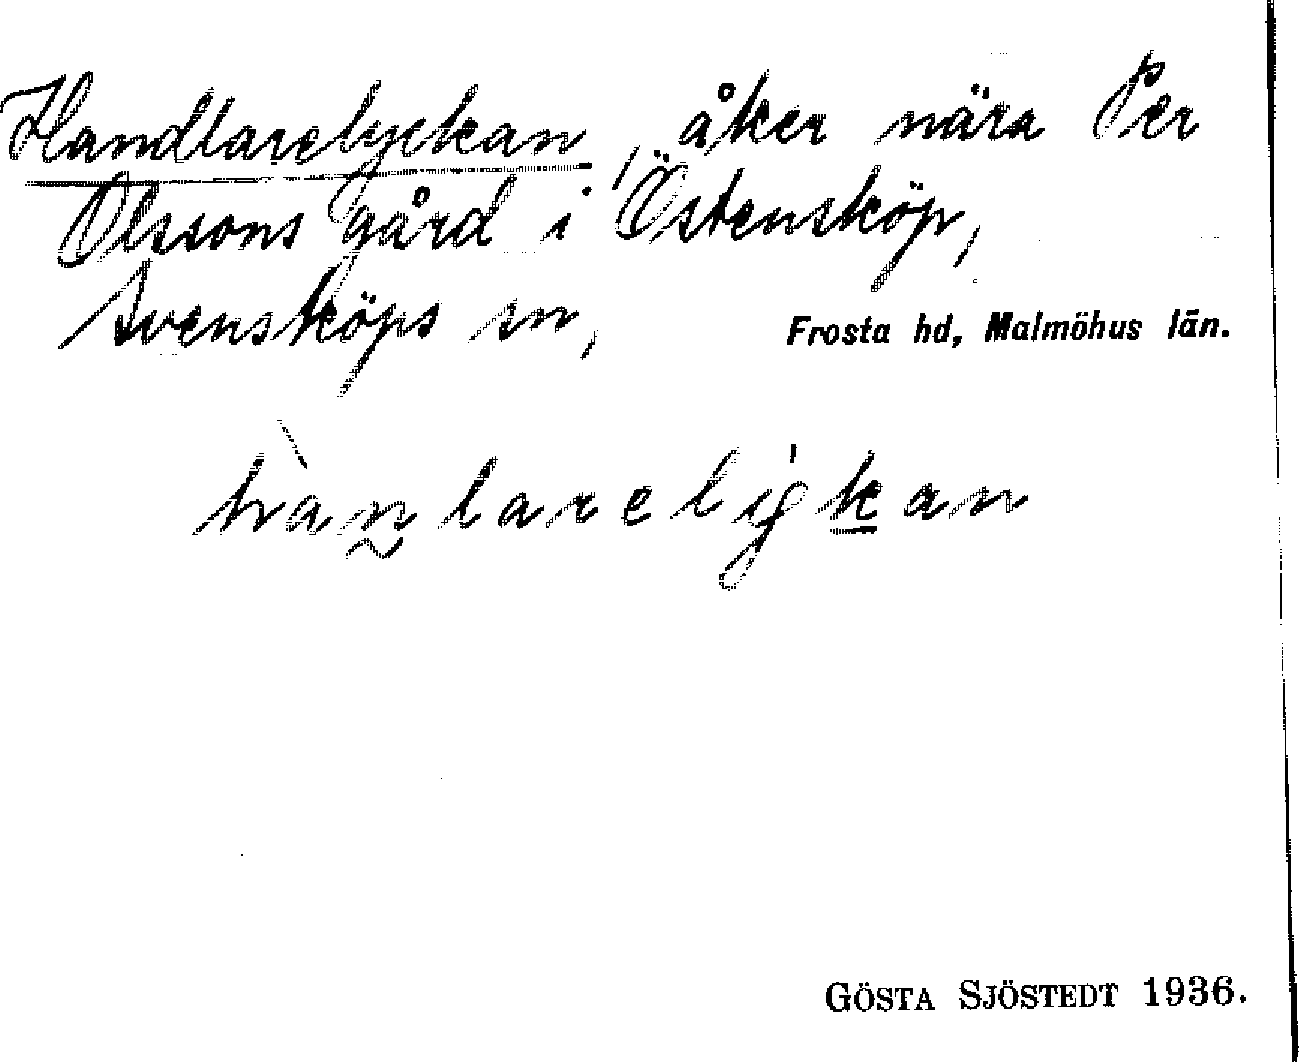 Handlarelyckan, åker nära Per
Olssons gård i Östensköp,
Svensköps sn, Frosta hd, Malmöhus län.
hàn̰larelyk̲an
GÖSTA SJÖSTEDT 1936.